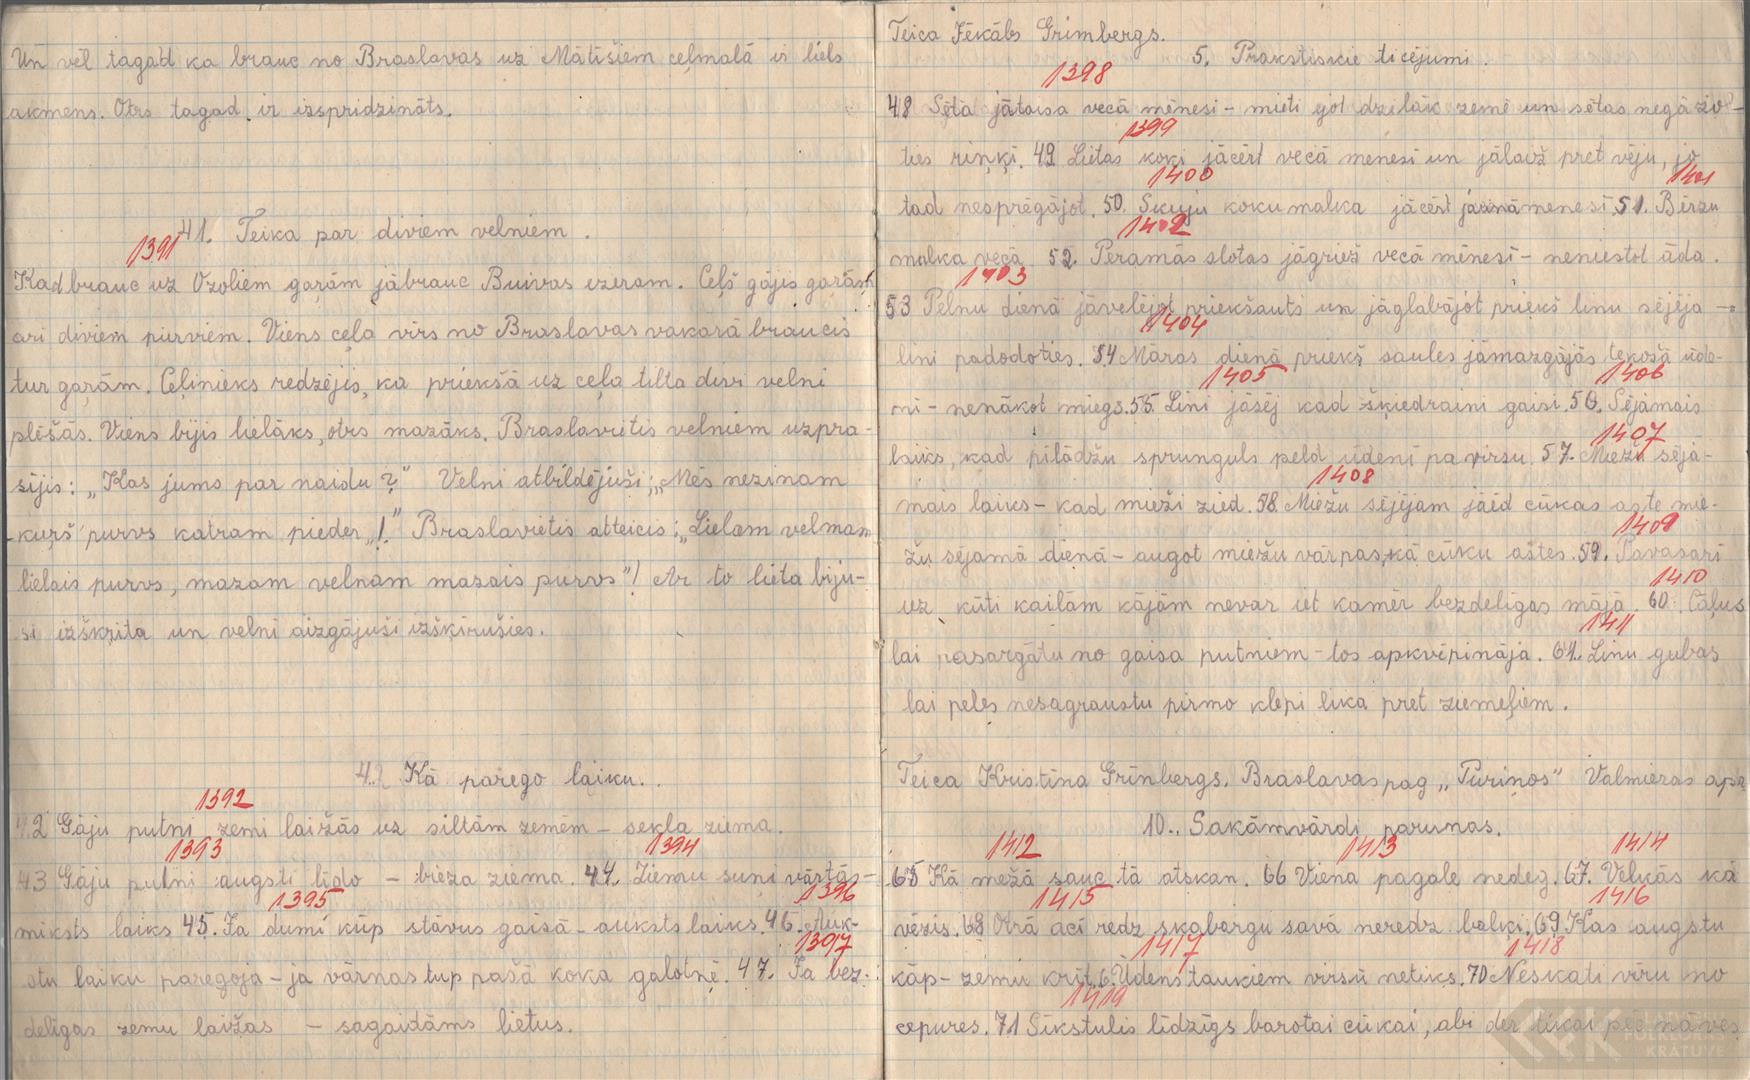 Un vēl tagad ka brauc no Braslavas uz Mātišiem ceļmalā ir liels
akmens. Otrs tagad ir isspridzināts.
1391
41. Teika par diviem velniem.
Kad brauc uz Ozoliem gaŗām jābrauc Buivas ezeram. Ceļš gājis gaŗām
ari diviem purviem. Viens ceļa vīrs no Braslavas vakarā braucis
tur gaŗām. Ceļinieks redzējis, ka priekšā uz ceļa tilta divi velni
plēšās. Viens bijis lielāks, otrs mazāks. Braslavietis velniem uzpra-
sījis: „Kas jums par naidu?" Velni atbildējuši: „Mēs nezinam
kuŗš purvs katram pieder„!" Braslavietis atteicis: „Lielam velnam
lielais purvs, mazam velnam mazais purvs"! Ar to lieta biju-
si izšķirta un velni aizgājuši izšķīrušies.
42 Kā paŗego laiku.
1392
42 Gāju putni zemi laižās uz siltām zemēm – sekla ziema.
1393 1394
43 Gāju putni augsti lido – bieza ziema. 44. Ziemu suņi vārtās –
1395 1396
miksts laiks 45. Ja dumi kūp stāvus gaisā – auksts laiks. 46. Auk-
1397
stu laiku paregoja – ja vārnas tup pašā koka galotnē. 47. Ja bez-
delīgas zemu laižas – sagaidāms lietus.
Teica Jēkābs Grimbergs.
5. Prakstiskie ticējumi.
1398
48 Sēta jātaisa vecā mēnesi – mieti ejot dziļāk zemē un sētas negāžo-
1399
ties riņķi. 49. Lietas koki jācērt vecā menesi un jālaiž pret vēju, jo
1400 1401
tad nesprēgājot. 50. Skuju koku malka jācērt jaunā menesi 51. Bērzu
1402
malka vecā 52. Peramās slotas jāgriež vecā mēnesī – neniestot āda.
1403
53 Pelnu dienā jāvelējot priekšauts un jāglabājot priekš linu sējēja –
1404
lini padodoties. 54 Māras dienā priekš saules jāmazgājās tekošā ūde-
1405 1406
nī – nenākot miegs. 55. Lini jāsēj kad šķiedraini gaisi. 56. Sējamais
1407
laiks, kad pilādžu sprunguls peld ūdenī pa virsu. 57. Miežu sēja-
1408
mais laiks – kad mieži zied. 58. Miežu sējējam jāēd cūkas aste mie-
1409
žu sējamā dienā – augot miežu vārpas kā cūku aštes. 59. Pavasarī
1410
uz kūti kailām kājām nevar iet kamēr bezdelīgas mājā. 60. Cāļus
1411
lai pasargātu no gaisa putniem – tos apkvēpināja. 61. Linu gubas
lai peles nesagraustu pirmo klēpi lika pret ziemeļiem.
Teica Kristīna Grīnbergs. Braslavas pag „Pūriņos" Valmieras apr.
10. Sakāmvārdi parunas.
1412 1413 1414
65 Kā mežā sauc tā atskan. 66 Viena pagale nedeg. 67. Velkās kā
1415 1416
vēzis. 68 Otrā acī redz skabargu savā neredz baļķi. 69 Kas augstu
1417 1418
kāp – zemu krīt. 6. Ūdens taukiem virsū netiks. 70 Neskati vīru no
1419
cepures. 71 Sīkstulis līdzīgs barotai cūkai, abi der tikai pēc nāves
FOLKLORAS
KRĀTUVE